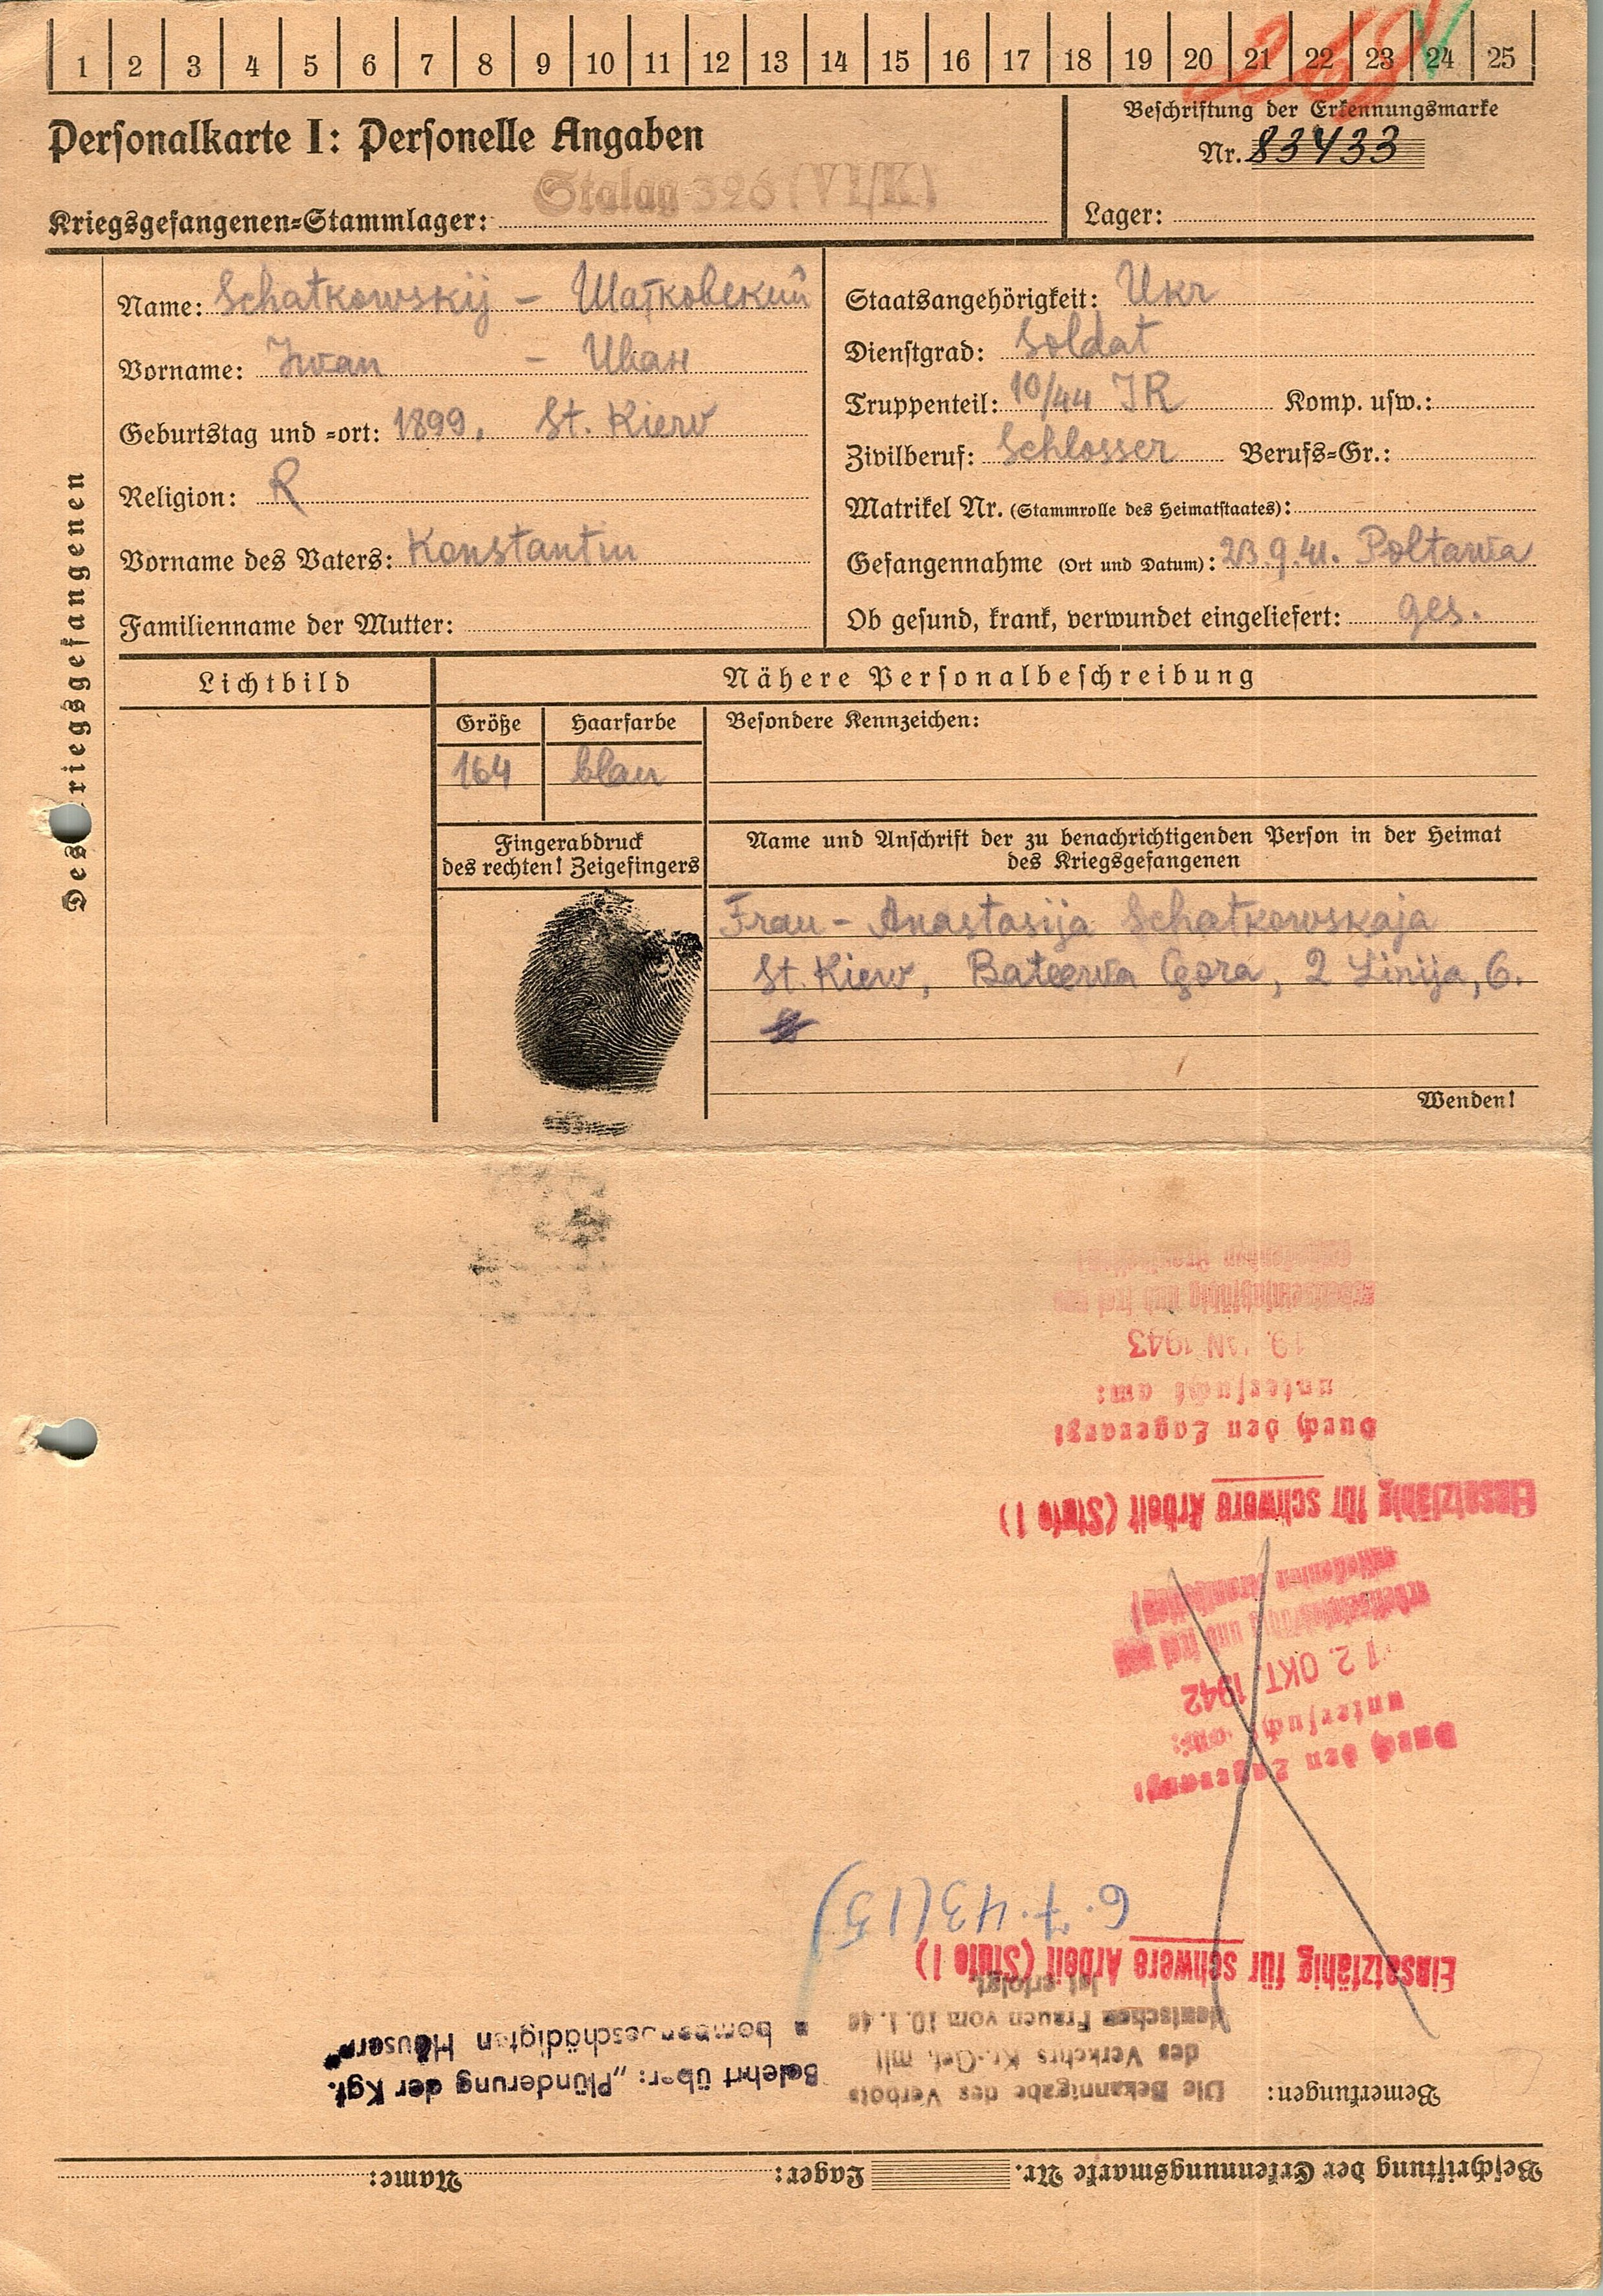 1 2 3 4 5 6 7 8 9 10 11 12 13 14 15 16 17 18 19 20 21 22 23 24 25
Personalkarte I: Personelle Angaben
Beschriftung der Erkennungsmarke
Nr. 83433
Kriegsgefangenen-Stammlager: Stalag 326 (VI/K)
Lager:
Des Kriegsgefangenen
Name: Schatkowskij - Шатковский
Vorname: Iwan - Иван
Geburtstag und -ort: 1899. St. Kiew
Religion: R
Vorname des Vaters: Konstantin
Familienname der Mutter:
Staatsangehörigkeit: Ukr
Dienstgrad: Soldat
Truppenteil: 10/44 IR Komp. usw.:
Zivilberuf: Schlosser Berufs-Gr.:
Matrikel Nr. (Stammrolle des Heimatstaates):
Gefangennahme (Ort und Datum): 23.9.41. Poltawa
Ob gesund, krank, verwundet eingeliefert: ges.
Lichtbild
Nähere Personalbeschreibung
Größe Haarfarbe Besondere Kennzeichen:
164 blau
Fingerabdruck
des rechten! Zeigefingers
Name und Anschrift der zu benachrichtigenden Person in der Heimat
des Kriegsgefangenen
Frau - Anastasija Schatkowskaja
St. Kiew, Bateewa Gora, 2 Linija, 6.
Wenden!
Beschriftung der Erkennungsmarke Nr. Lager: Name:
Bemerkungen:
Die Bekanntgabe des Verbots
des Verkehrs Kr.-Gef. mit
deutschen Frauen vom 10.1.40
ist erfolgt.
Belehrt über: „Plünderung der Kgf.
bombengeschädigten Häusern"
Einsatzfähig für schwere Arbeit (Stufe I)
6.7.43 (15)
Durch den Lagerarzt
untersucht am:
12. OKT. 1942
arbeitseinsatzfähig und frei von
ansteckenden Krankheiten
Einsatzfähig für schwere Arbeit (Stufe I)
Durch den Lagerarzt
untersucht am:
19. JAN 1943
arbeitseinsatzfähig und frei von
ansteckenden Krankheiten